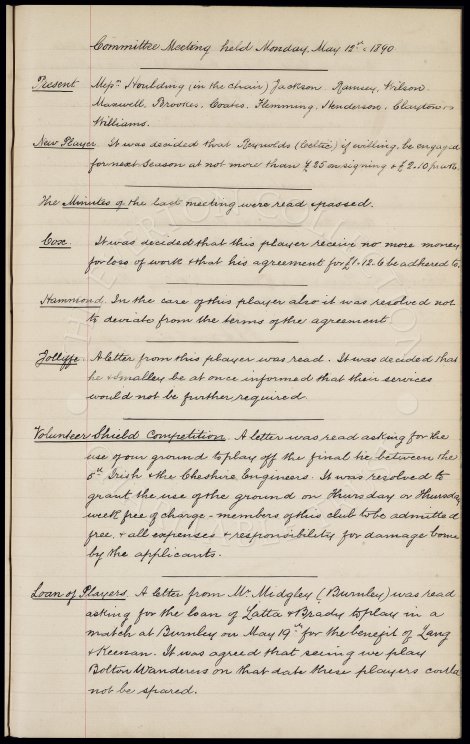 Committee Meeting held Monday, May 12th 1890
Present Messrs Houlding (in the chair) Jackson. Ramsey, Wilson
Maxwell. Brookes. Coates. Flemming. Henderson. Clayton &
Williams.
New Player. It was decided that Reynolds (Celtic) if willing, be engaged
for next season at not more than £25 on signing & £2.10/- p.wk.
The Minutes of the last meeting were read & passed.
Cox. It was decided that this player receive no more money
for loss of work & that his agreement for £1.12.6 be adhered to.
Hammond. In the case of this player also it was resolved not
to deviate from the terms of the agreement
Jolliffe. A letter from this player was read. It was decided that
he & Smalley be at once informed that their services
would not be further required.
Volunteer Shield Competition. A letter was read asking for the
use of our ground to play off the final tie between the
5th Irish & the Cheshire Engineers. It was resolved to
grant the use of the ground on Thursday or Thursday
week free of charge - members of this club to be admitted
free, & all expenses & responsibility for damage borne
by the applicants.
Loan of Players. A letter from Mr Midgley (Burnley) was read
asking for the loan of Latta & Brady to play in a
match at Burnley on May 19th for the benefit of Lang
& Keenan. It was agreed that seeing we play
Bolton Wanderers on that date these players could
not be spared.
EVERTON COLLECTION